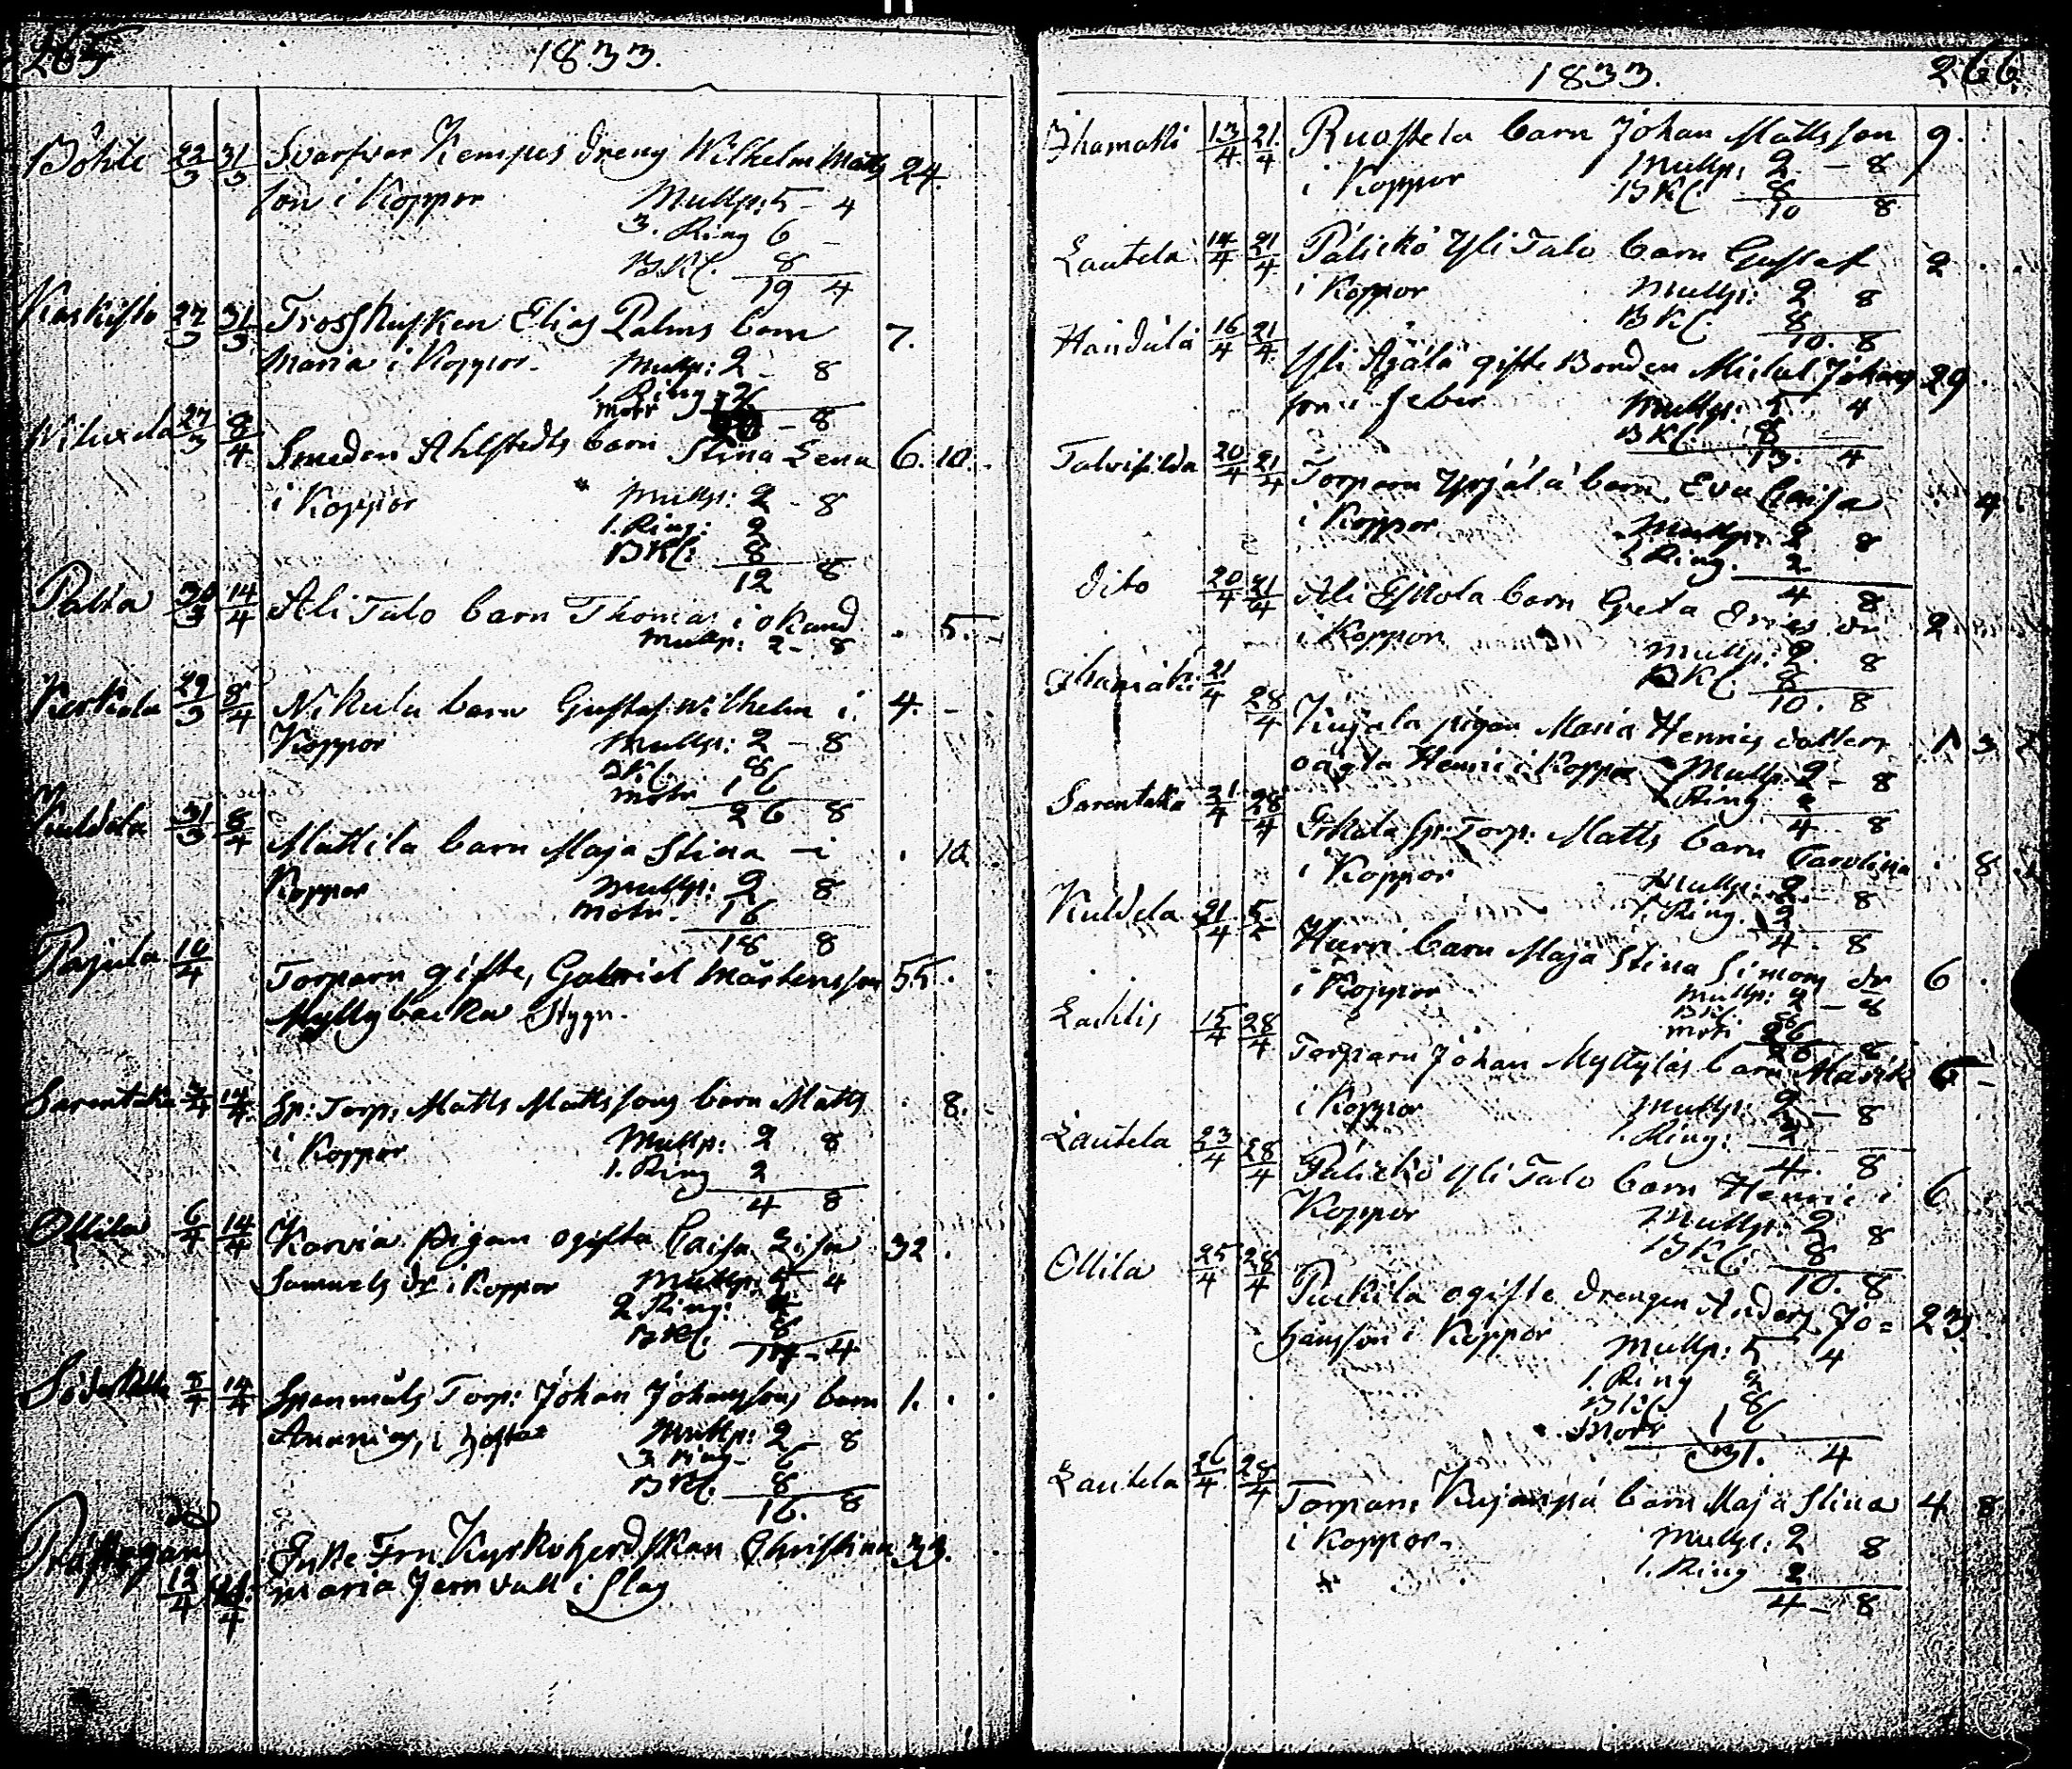 265
1833.
Böhle 22/3 31/3 Svarfvar Kempes dreng Wilhelm Matts 24.
son i Koppor Mullp: 5 - 4
3. Ring 6 -
BKl. 8
19 4
Kaskisto 27/3 31/3 Trosskusken Elias Palms barn 7.
Maria i Koppor. Mullp: 2 - 8
1 Ring 2
8
27/3 8/4 Smeden Ahlstedts barn Stina Lena 6. 10.
i Koppor Mullp: 2 - 8
1. Ring: 2
BKl: 8
12 8
Palta 30/3 14/4 Ali Talo barn Thomas i okänd . 5. -
Mullp: 2 - 8
Kerkola 29/3 8/4 Nikula barn Gustaf Wilhelm i 4. -
Koppor Mullp: 2 - 8
BKl. 8
Motr 16
26 8
Kuldela 31/3 8/4 Mattila barn Maja Stina - i . 10.
Koppor Mullp: 2 8
Motr. 16
18 8
Pajula 10/4 Torparn gifte, Gabriel Mårtensson 55.
Myllybacka Stygn.
Sarentaka 14/4 Sp: Torp: Matts Mattssons barn Matts . 8.
i Koppor Mullp: 2 8
1. Ring 2
4 8
Ollila 6/4 14/4 Korvia pigan ogifta Caisa Lisa 32.
Samuels dr i Koppor Mullp: 5 4
2 Ring: 4
BKl. 8
17 - 4
14/4 Spanmåls Torp: Johan Johanssons barn 1. .
Ananias, i Mullp: 2 - 8
3. Ring - 6
BKl. 8
16. 8
Prästegården
12/4 14/4 Enke Fru Kyrkoherdskan Christina 33.
Maria Jernvall i Slag
1833. 266
Ihamäki 13/4 21/4 Ruostela barn Johan Mattsson 9.
i Koppor Mullp: 2 - 8
BKl. 8
10 8
Lautela 14/4 21/4 Pälickö Yli Talo barn Gustaf 2 . .
i Koppor Mullp: 2 8
BKl. 8
10. 8
Handula 16/4 21/4 Yli Äijälä gifte Bonden Michel Johans 29.
son i feber Mullp: 5 4
BKl: 8
13. 4
Talvisilda 20/4 21/4 Torparn Yrjälä barn Eva Caisa . 4.
i Koppor Mullp: 2 8
1 Ring. 2
4 8
dito 20/4 21/4 Ali Eskola barn Greta Erics dr 2.
i Koppor Mullp: 2. 8
BKl 8
10. 8
Ihamäki 21/4 28/4 pigan Maria Henrics dotters 3
oägta Henric i Koppor Mullp. 2 - 8
1 Ring 2
4 8
Sarentaka 21/4 28/4 Sp: Torp: Matts barn Carolina . 8
i Koppor Mullp: 2 - 8
1. Ring. 2
4. 8
Kuldela 21/4 5/5 Hurri barn Maja Stina Simons dr 6 .
i Koppor Mullp: 2 - 8
BKl 8
Motr 16
26 8
Lachlis 15/4 28/4 Torparn Johan Myllyläs barn 6 -
i Koppor Mullp: 2 - 8
1. Ring: 2
4. 8
Lautela 23/4 28/4 Pälickö Yli Talo barn Henric i 6
Koppor Mullp: 2 8
BKl: 8
10. 8
Ollila 25/4 28/4 Puckila ogifte drengen Anders Jo= 23.
hansson i Koppor Mullp: 5 4
1. Ring 2
BKl. 8
Motr 16
31. 4
Lautela 26/4 28/4 Torparn Kujanpä barn Maja Stina 4 8.
i Koppor. Mullp: 2 8
1. Ring 2
4 - 8